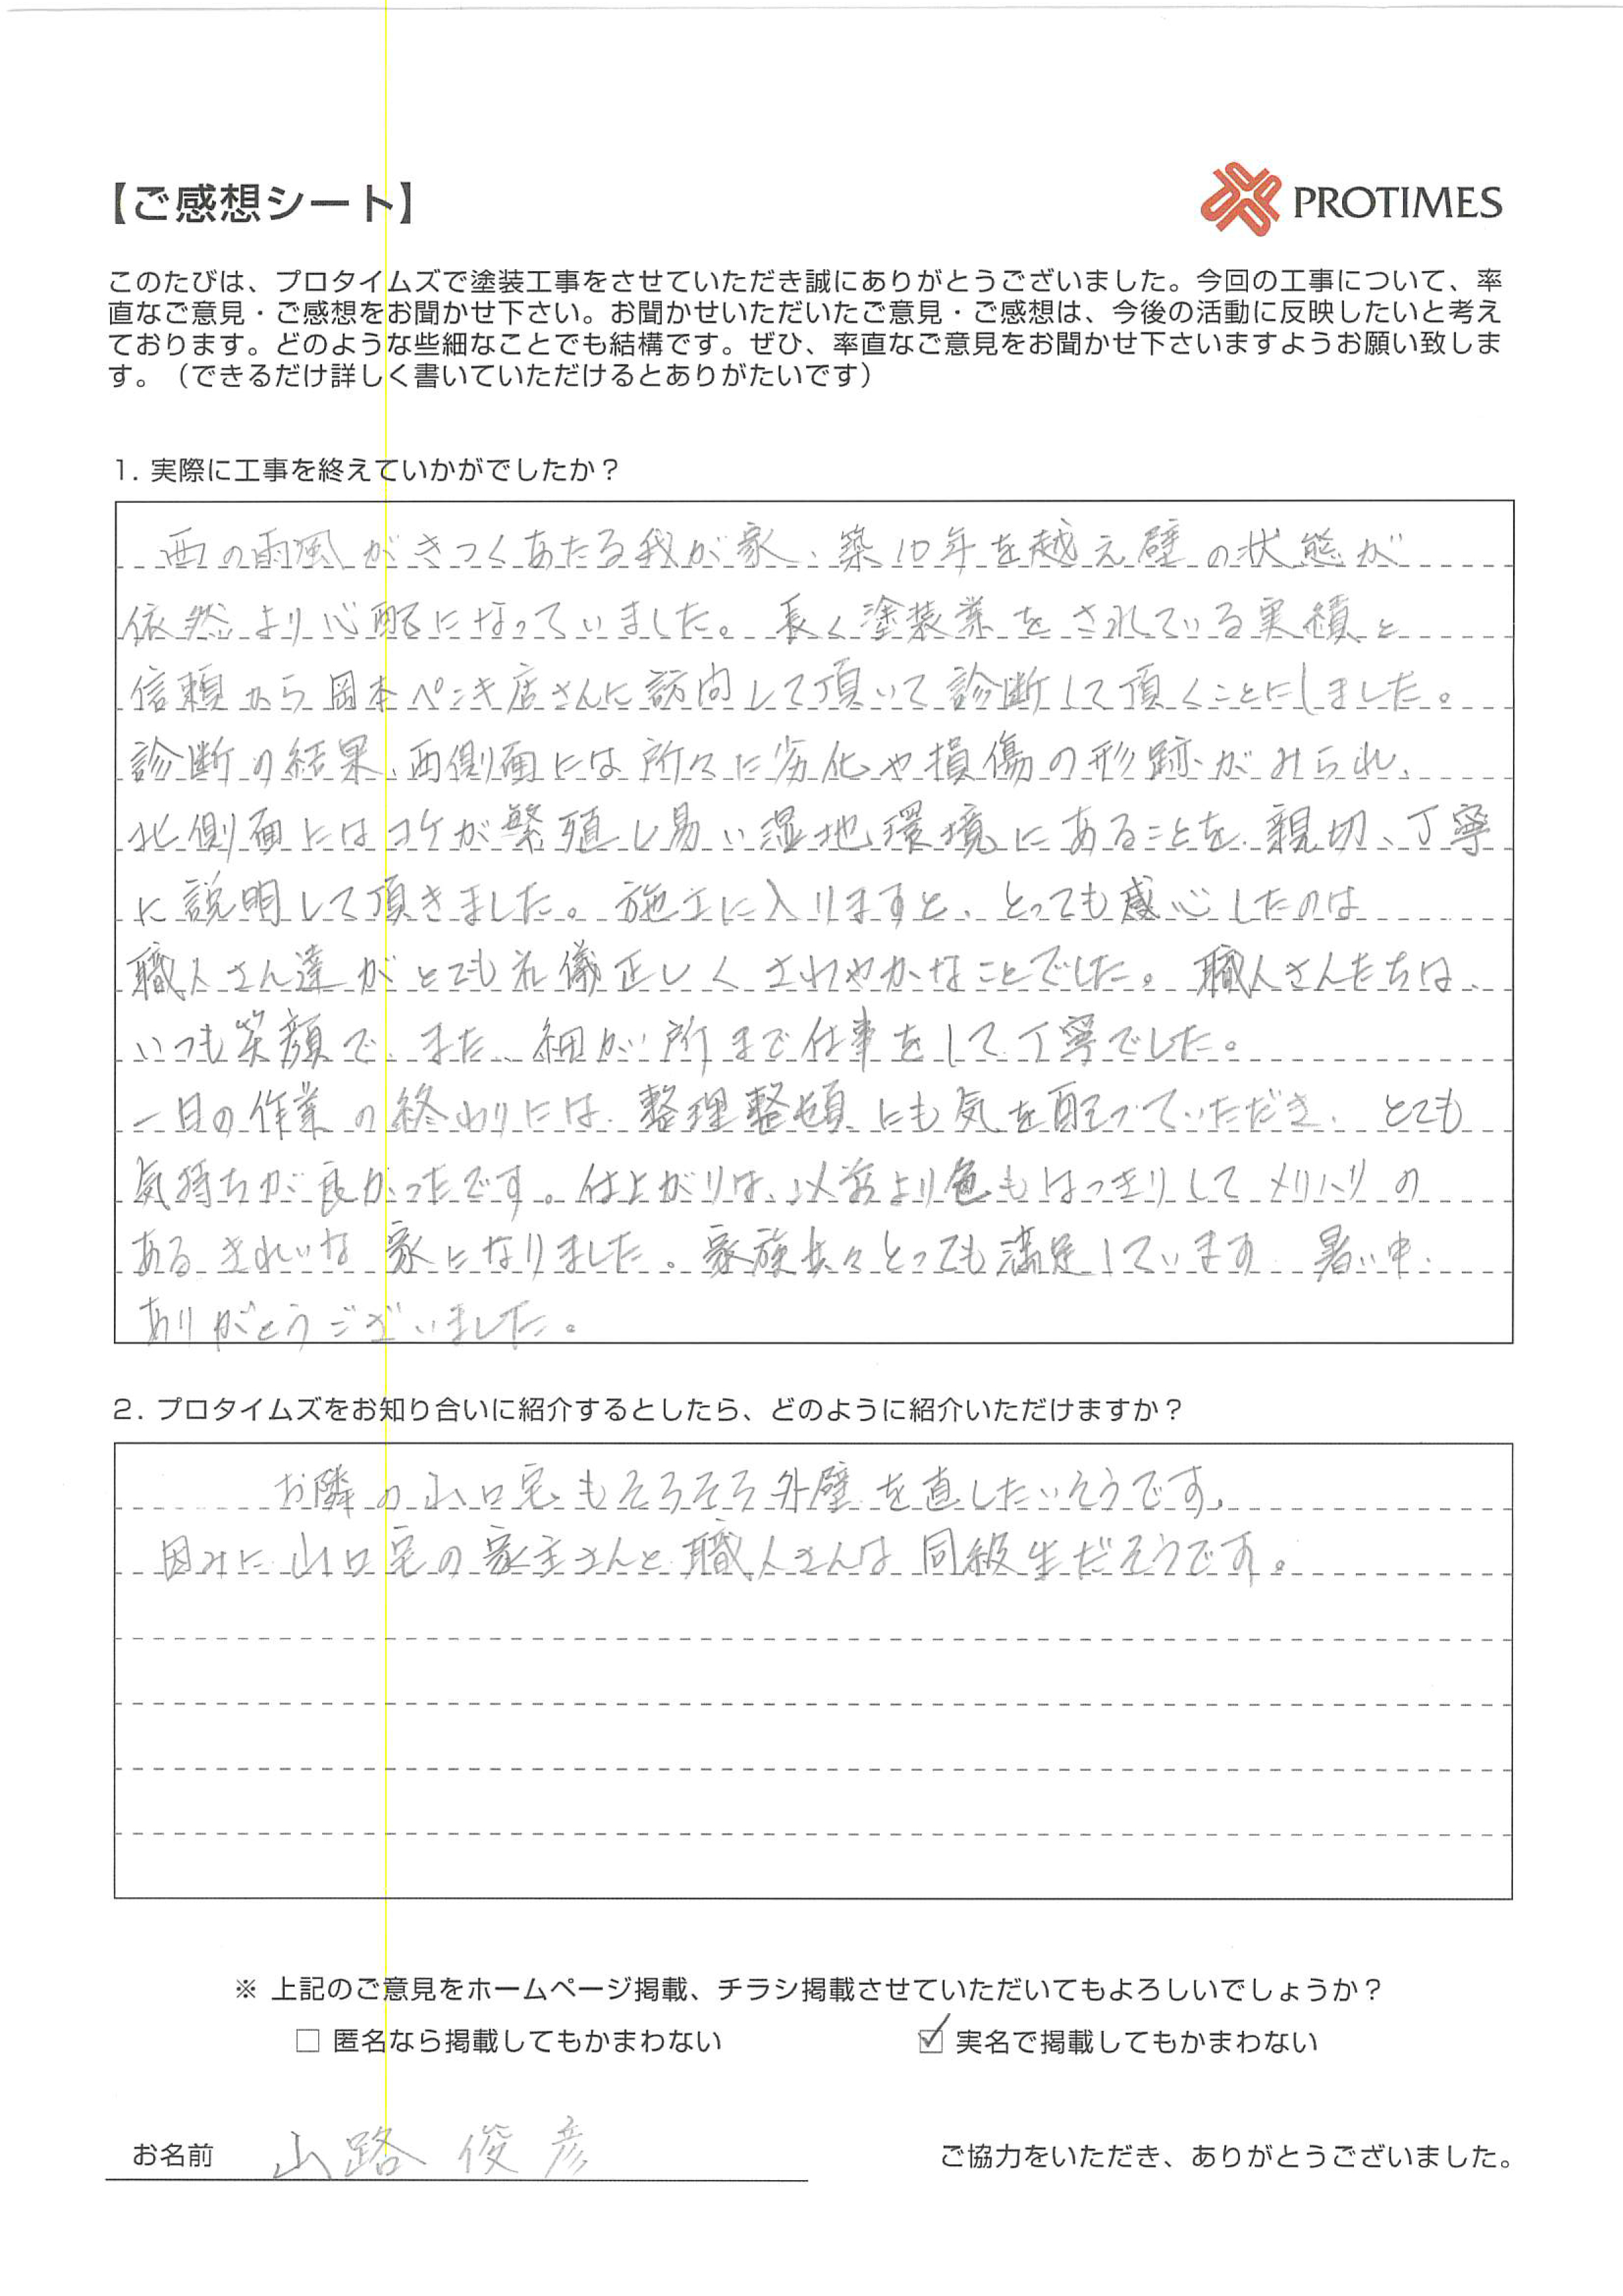 【ご感想シート】
PROTIMES
このたびは、プロタイムズで塗装工事をさせていただき誠にありがとうございました。今回の工事について、率
直なご意見・ご感想をお聞かせ下さい。お聞かせいただいたご意見・ご感想は、今後の活動に反映したいと考え
ております。どのような些細なことでも結構です。ぜひ、率直なご意見をお聞かせ下さいますようお願い致しま
す。（できるだけ詳しく書いていただけるとありがたいです）
1. 実際に工事を終えていかがでしたか？
西の雨風がきつくあたる我が家、築10年を越え壁の状態が
依然より心配になっていました。長く塗装業をされている実績と
信頼から岡本ペンキ店さんに訪問して頂いて診断して頂くことにしました。
診断の結果、西側面には所々に劣化や損傷の形跡がみられ、
北側面にはコケが繁殖し易い湿地環境にあることを、親切、丁寧
に説明して頂きました。施工に入りますと、とっても感心したのは
職人さん達がとても礼儀正しくさわやかなことでした。職人さんたちは、
いつも笑顔で、また、細かい所まで仕事をして丁寧でした。
一日の作業の終わりには、整理整頓にも気を配っていただき、とても
気持ちが良かったです。仕上がりは、以前より色もはっきりしてメリハリの
あるきれいな家になりました。家族共々とっても満足しています 暑い中、
ありがとうございました。
2. プロタイムズをお知り合いに紹介するとしたら、どのように紹介いただけますか？
お隣の山口宅もそろそろ外壁を直したいそうです。
因みに山口宅の家主さんと職人さんは同級生だそうです。
※ 上記のご意見をホームページ掲載、チラシ掲載させていただいてもよろしいでしょうか？
□ 匿名なら掲載してもかまわない ☑ 実名で掲載してもかまわない
お名前 山路 俊彦 ご協力をいただき、ありがとうございました。